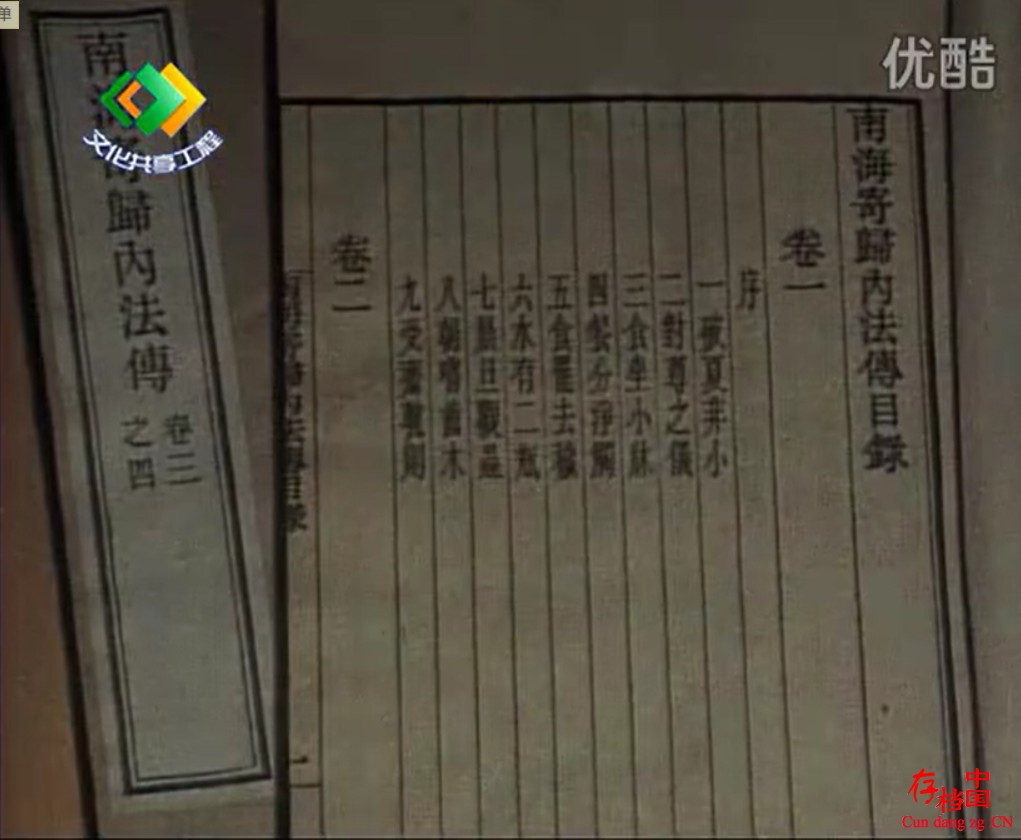 单
优酷
文化共享工程
南海寄歸內法傳目錄
卷一
序
一破夏非小
二對尊之儀
三食坐小牀
四餐分淨觸
五食罷去穢
六水有二瓶
七晨旦觀蟲
八朝嚼齒木
九受齋軌則
卷二
南海寄歸內法傳
卷三
之四
存档中国
Cun dang zg.CN